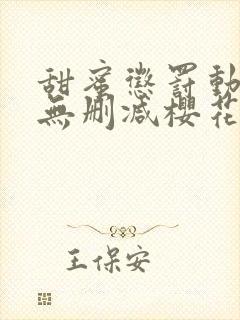 甜蜜懲罰動
無刪減櫻花
王保安